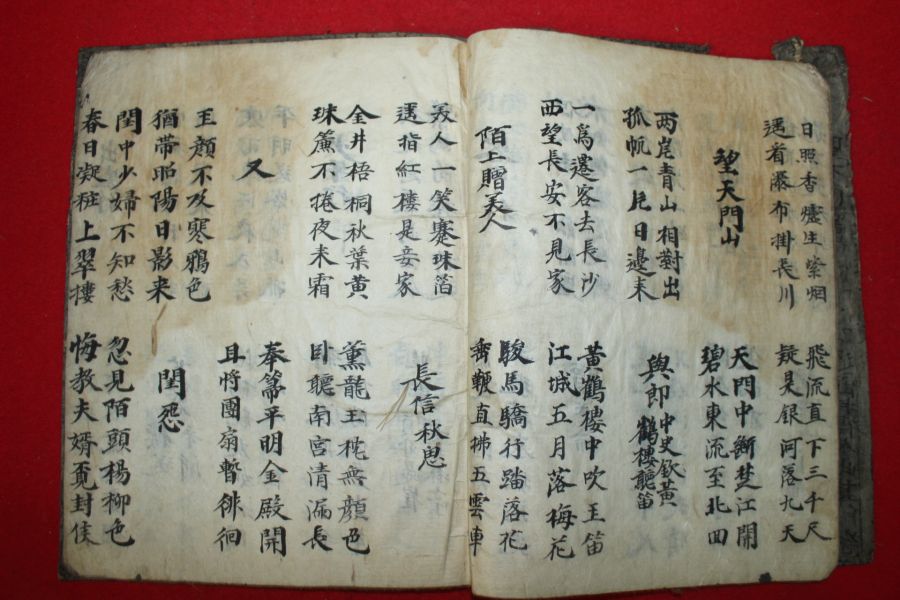 日照香爐生紫烟
遥看瀑布掛長川
飛流直下三千尺
疑是銀河落九天
望天門山
天門中斷楚江開
碧水東流至北回
两岸青山相對出
孤帆一片日邊来
與郎中史欽黃鶴樓聽笛
一爲遷客去長沙
西望長安不見家
黃鶴樓中吹王笛
江城五月落梅花
陌上贈美人
駿馬驕行踏落花
鞭直拂五雲車
美人一笑褰珠箔
遥指紅樓是妾家
長信秋思
金井梧桐秋葉黃
珠簾不捲夜来霜
薰龍王枕無顔色
卧聽南宮清漏長
又
奉箒平明金殿開
且將團扇暫徘徊
王顔不及寒鴉色
猶帶昭陽日影来
閨怨
閨中少婦不知愁
春日凝粧上翠樓
忽見陌頭楊柳色
悔教夫婿覓封侯